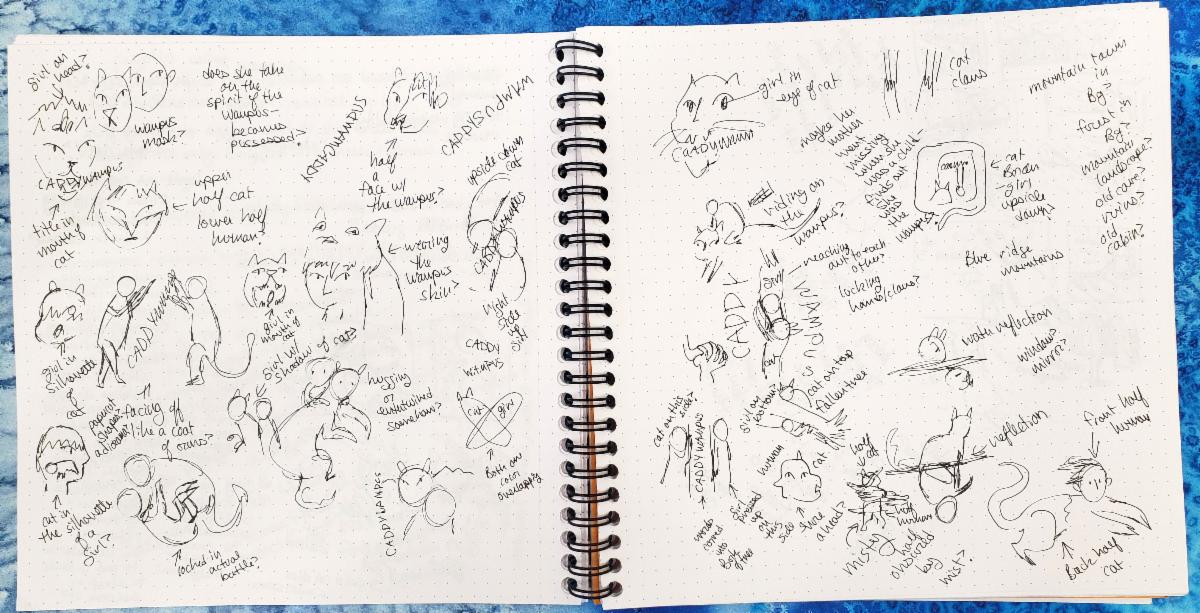 girl on
head?
wampus
mask?
does she take
on the
spirit of the
wampus -
becomes
possessed?
CADDYWAMPUS
title in
mouth of
cat
upper
half cat
lower half
human?
CADDYWUMPUS
half
a
face w/
the wampus?
CADDYSWUMPUS
upside down
cat
CADDYWUMPUS
right
side
girl
wearing
the
wampus
skin?
girl in
mouth of
cat
girl in
silhouette
of
cat
CADDYWUMPUS
facing off
like a coat
of arms?
girl w/
shadow of cat?
hugging
or
entwined
somehow?
CADDY
WUMPUS
cat
girl
Both on
color
overlapping
cat in
the silhouette
of a
girl?
locked in
actual
battle?
CADDYWUMPUS
girl in
eye of cat
CADDYWUMPUS
cat
claws
maybe her
mother
went
missing
when she
was a child -
finds out
she
was
the
wampus?
cat
Border
- girl
upside
down?
mountain town
in
Bg?
forest in
Bg?
mountain
landscape?
old cave?
old
ruins?
old
cabin?
Blue ridge
mountains
riding on
the
wampus?
reaching
out to each
other?
locking
hands/claws?
CADDY
WUMPUS
girl
cat
water reflection
window?
mirror?
cat on top
fallen tree
girl on
bottom
cat on this
side?
CADDYWUMPUS
words
carved
into
Bark
of tree
girl
pressed
up
on
this
side
human
cat
share
a head?
half
cat
half
human
misty
half
obscured
by
mist?
reflection
front half
human
Back half
cat